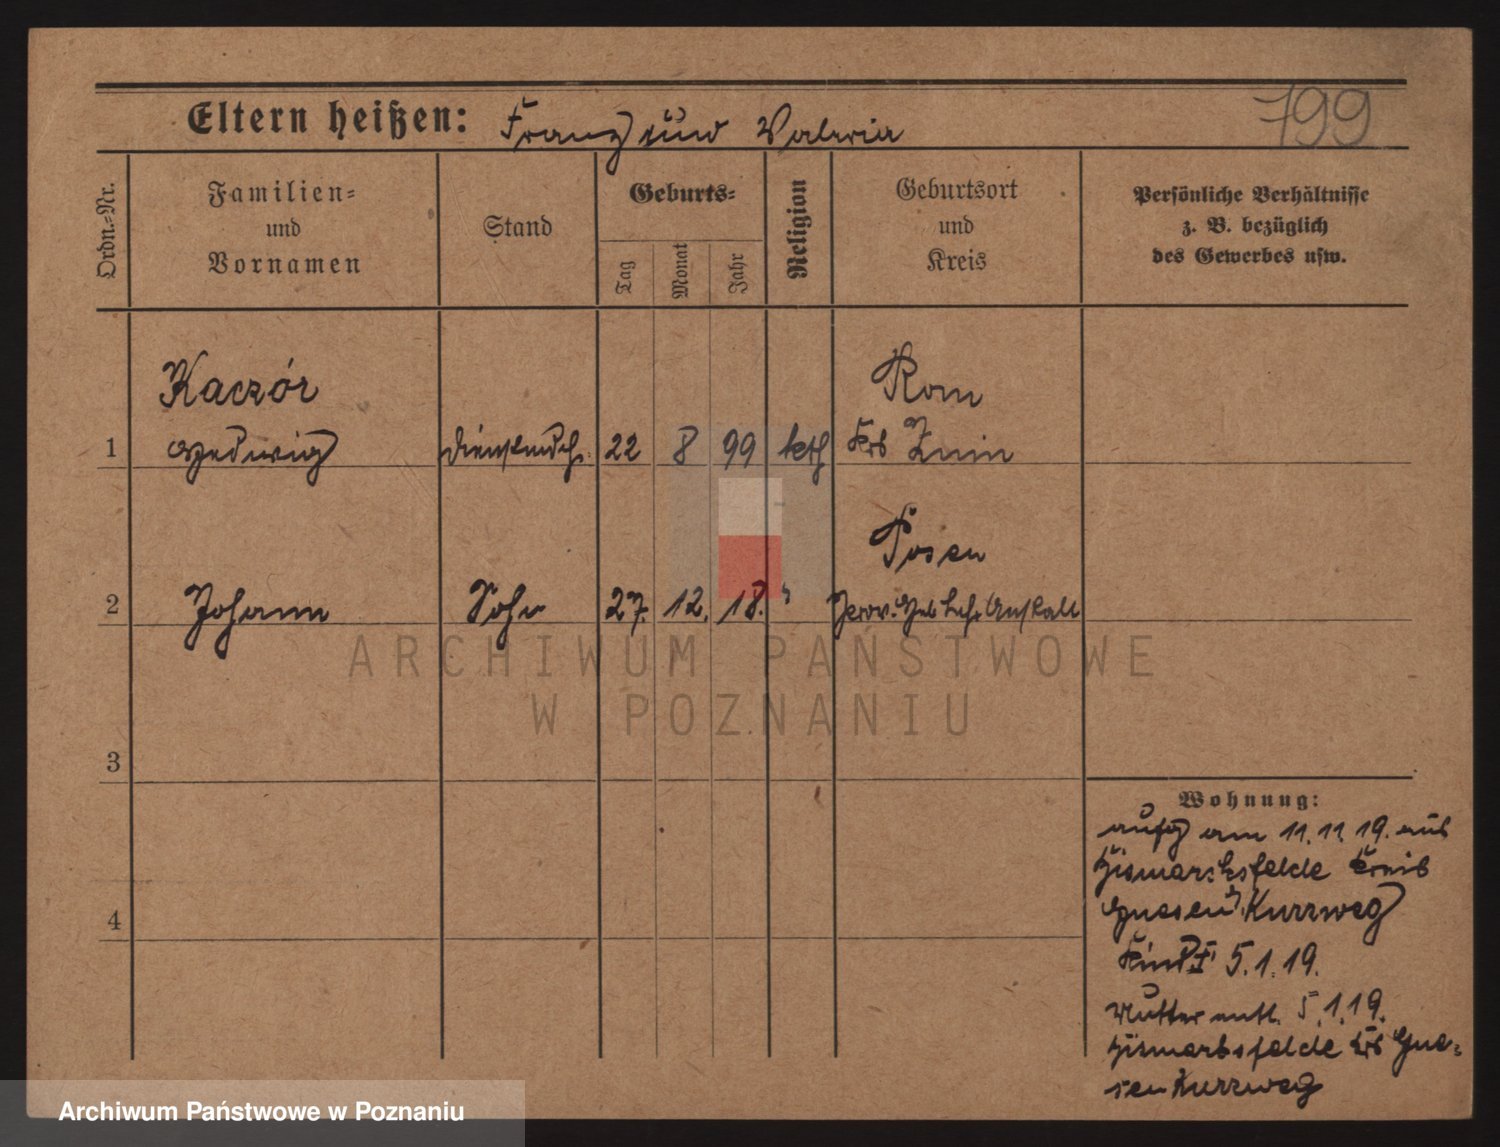 799
Eltern heißen: Franz und Valeria
Ordn.=Nr.
Familien=
und
Vornamen
Stand
Geburts=
Tag
Monat
Jahr
Religion
Geburtsort
und
Kreis
Persönliche Verhältnisse
z. B. bezüglich
des Gewerbes usw.
Kaczór
Rom
1 Hedwig Dienstmdch. 22 8 99 kth Krs Znin
Posen
2 Johann Sohn 27. 12. 18. " Prov. Heb Lehr Anstalt
3
4
Wohnung:
am 11.11.19. aus
Bismarcksfelde Kreis
Gnesen Kurzweg
Kind † 5.1.19.
Mutter entl. 5.1.19.
Bismarksfelde Krs Gne=
sen Kurzweg
ARCHIWUM PAŃSTWOWE
W POZNANIU
Archiwum Państwowe w Poznaniu